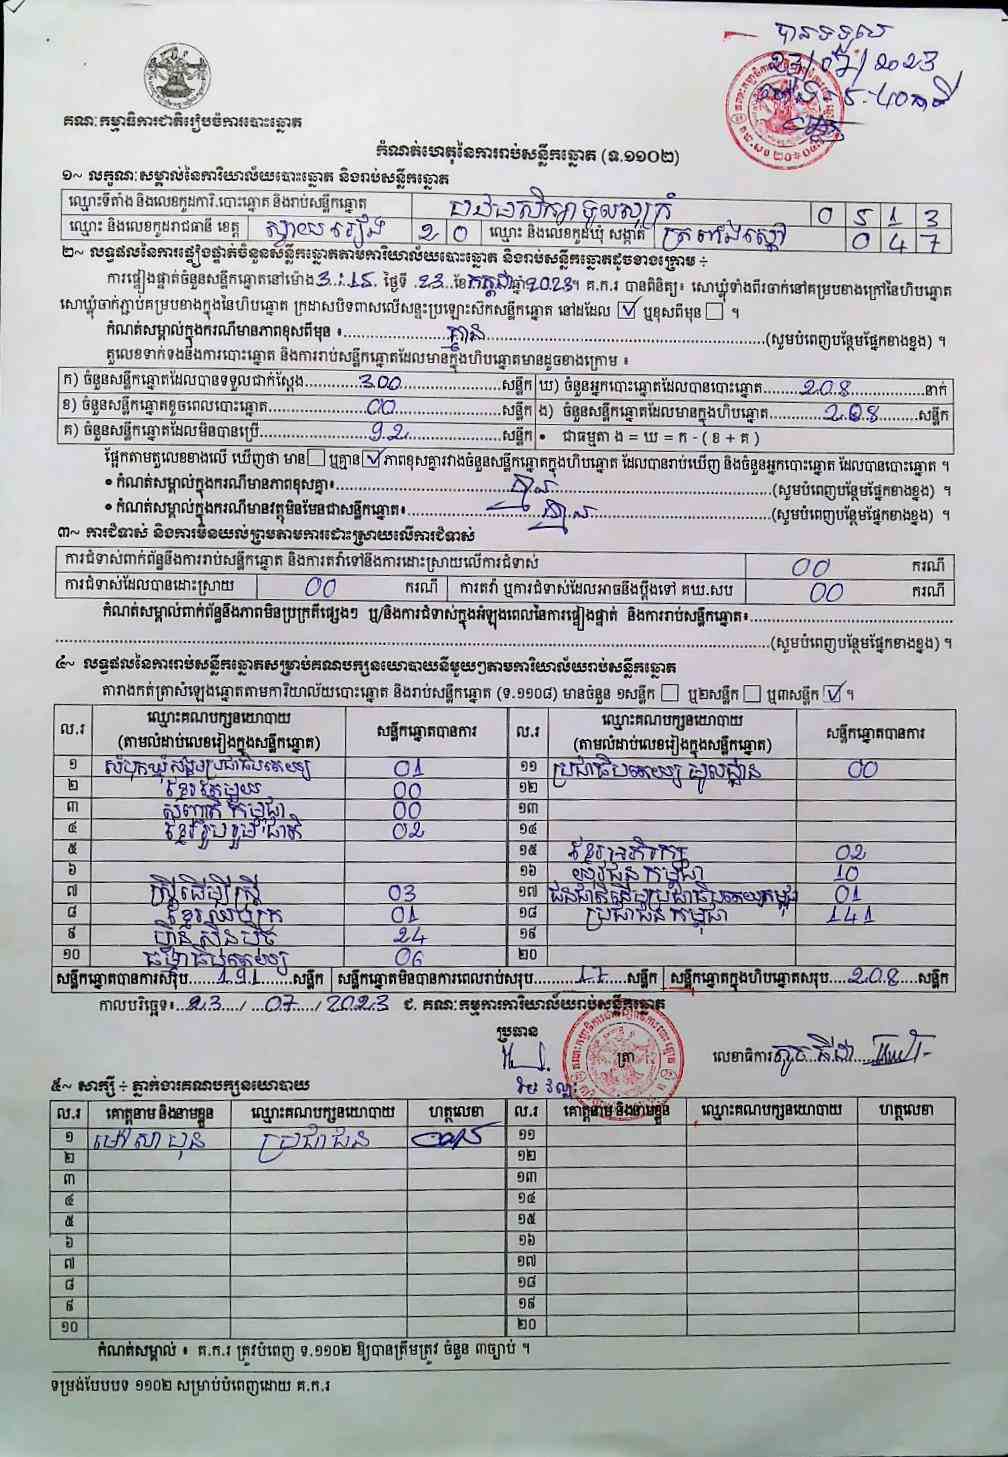 បានទទួល
23/07/2023
ម៉ោង ៥:៤០នាទី
គណៈកម្មាធិការជាតិរៀបចំការបោះឆ្នោត
កំណត់ហេតុនៃការរាប់សន្លឹកឆ្នោត (ទ.១១០២)
១~ លក្ខណៈសម្គាល់នៃការិយាល័យបោះឆ្នោត និងរាប់សន្លឹកឆ្នោត
ឈ្មោះទីតាំង និងលេខកូដការិ.បោះឆ្នោត និងរាប់សន្លឹកឆ្នោត បឋមសិក្សា ទួលសក្រំ 0 5 1 3
ឈ្មោះ និងលេខកូដរាជធានី ខេត្ត ស្វាយរៀង 2 0 ឈ្មោះ និងលេខកូដឃុំ សង្កាត់ ត្រពាំងស្ដៅ 0 4 7
២~ លទ្ធផលនៃការផ្ទៀងផ្ទាត់ចំនួនសន្លឹកឆ្នោតតាមការិយាល័យបោះឆ្នោត និងរាប់សន្លឹកឆ្នោតដូចខាងក្រោម ÷
ការផ្ទៀងផ្ទាត់ចំនួនសន្លឹកឆ្នោតនៅម៉ោង 3:15 ថ្ងៃទី 23 ខែ កក្កដា ឆ្នាំ 2023។ គ.ក.រ បានពិនិត្យ៖ សោឃ្លុំទាំងពីរចាក់នៅគម្របខាងក្រៅនៃហិបឆ្នោត
សោឃ្លុំចាក់ភ្ជាប់គម្របខាងក្នុងនៃហិបឆ្នោត ក្រដាសបិទពាសលើសន្ទះប្រឡោះស៊កសន្លឹកឆ្នោត នៅដដែល ☑ ឬខុសពីមុន ☐ ។
កំណត់សម្គាល់ក្នុងករណីមានភាពខុសពីមុន ៖ គ្មាន (សូមបំពេញបន្ថែមផ្នែកខាងខ្នង) ។
តួលេខទាក់ទងនឹងការបោះឆ្នោត និងការរាប់សន្លឹកឆ្នោតដែលមានក្នុងហិបឆ្នោតមានដូចខាងក្រោម ៖
ក) ចំនួនសន្លឹកឆ្នោតដែលបានទទួលជាក់ស្ដែង 300 សន្លឹក ឃ) ចំនួនអ្នកបោះឆ្នោតដែលបានបោះឆ្នោត 208 នាក់
ខ) ចំនួនសន្លឹកឆ្នោតខូចពេលបោះឆ្នោត 00 សន្លឹក ង) ចំនួនសន្លឹកឆ្នោតដែលមានក្នុងហិបឆ្នោត 208 សន្លឹក
គ) ចំនួនសន្លឹកឆ្នោតដែលមិនបានប្រើ 92 សន្លឹក • ជាធម្មតា ង = ឃ = ក - ( ខ + គ )
ផ្អែកតាមតួលេខខាងលើ ឃើញថា មាន ☐ ឬគ្មាន ☑ ភាពខុសគ្នារវាងចំនួនសន្លឹកឆ្នោតក្នុងហិបឆ្នោត ដែលបានរាប់ឃើញ និងចំនួនអ្នកបោះឆ្នោត ដែលបានបោះឆ្នោត ។
• កំណត់សម្គាល់ក្នុងករណីមានភាពខុសគ្នា៖ គ្មាន (សូមបំពេញបន្ថែមផ្នែកខាងខ្នង) ។
• កំណត់សម្គាល់ក្នុងករណីមានវត្ថុមិនមែនជាសន្លឹកឆ្នោត៖ គ្មាន (សូមបំពេញបន្ថែមផ្នែកខាងខ្នង) ។
៣~ ការជំទាស់ និងការមិនយល់ព្រមតាមការដោះស្រាយលើការជំទាស់
ការជំទាស់ពាក់ព័ន្ធនឹងការរាប់សន្លឹកឆ្នោត និងការតវ៉ាទៅនឹងការដោះស្រាយលើការជំទាស់ 00 ករណី
ការជំទាស់ដែលបានដោះស្រាយ 00 ករណី ការតវ៉ា ឬការជំទាស់ដែលអាចនឹងប្ដឹងទៅ គឃ.សប 00 ករណី
កំណត់សម្គាល់ពាក់ព័ន្ធនឹងភាពមិនប្រក្រតីផ្សេងៗ ឬ/និងការជំទាស់ក្នុងអំឡុងពេលនៃការផ្ទៀងផ្ទាត់ និងការរាប់សន្លឹកឆ្នោត៖
(សូមបំពេញបន្ថែមផ្នែកខាងខ្នង) ។
៤~ លទ្ធផលនៃការរាប់សន្លឹកឆ្នោតសម្រាប់គណបក្សនយោបាយនីមួយៗតាមការិយាល័យរាប់សន្លឹកឆ្នោត
តារាងកត់ត្រាសំឡេងឆ្នោតតាមការិយាល័យបោះឆ្នោត និងរាប់សន្លឹកឆ្នោត (ទ.១១០៨) មានចំនួន ១សន្លឹក ☐ ឬ២សន្លឹក ☐ ឬ៣សន្លឹក ☑ ។
ល.រ ឈ្មោះគណបក្សនយោបាយ (តាមលំដាប់លេខរៀងក្នុងសន្លឹកឆ្នោត) សន្លឹកឆ្នោតបានការ ល.រ ឈ្មោះគណបក្សនយោបាយ (តាមលំដាប់លេខរៀងក្នុងសន្លឹកឆ្នោត) សន្លឹកឆ្នោតបានការ
១ សំបុកឃ្មុំសង្គមប្រជាធិបតេយ្យ 01 ១១ ប្រជាធិបតេយ្យ មូលដ្ឋាន 00
២ ខ្មែរតែមួយ 00 ១២
៣ សញ្ជាតិ កម្ពុជា 00 ១៣
៤ ខ្មែររួបរួមជាតិ 02 ១៤
៥ ១៥ ខ្មែរអភិរក្ស 02
៦ ១៦ យុវជនកម្ពុជា 10
៧ ស្ត្រីដើម្បីស្ត្រី 03 ១៧ ជនជាតិដើមប្រជាធិបតេយ្យកម្ពុជា 01
៨ ខ្មែរឈប់ក្រ 01 ១៨ ប្រជាជន កម្ពុជា 141
៩ ហ្វ៊ុនស៊ិនប៉ិច 24 ១៩
១០ ធម្មាធិបតេយ្យ 06 ២០
សន្លឹកឆ្នោតបានការសរុប 191 សន្លឹក សន្លឹកឆ្នោតមិនបានការពេលរាប់សរុប 17 សន្លឹក សន្លឹកឆ្នោតក្នុងហិបឆ្នោតសរុប 208 សន្លឹក
កាលបរិច្ឆេទ៖ 23/07/2023 ជ. គណៈកម្មការការិយាល័យរាប់សន្លឹកឆ្នោត
ប្រធាន
ត្រា
លេខាធិការ
៥~ សាក្សី ÷ ភ្នាក់ងារគណបក្សនយោបាយ
ល.រ គោត្តនាម និងនាមខ្លួន ឈ្មោះគណបក្សនយោបាយ ហត្ថលេខា ល.រ គោត្តនាម និងនាមខ្លួន ឈ្មោះគណបក្សនយោបាយ ហត្ថលេខា
១ ម៉ៅ សាហុន ប្រជាជន ១១
២ ១២
៣ ១៣
៤ ១៤
៥ ១៥
៦ ១៦
៧ ១៧
៨ ១៨
៩ ១៩
១០ ២០
កំណត់សម្គាល់ ៖ គ.ក.រ ត្រូវបំពេញ ទ.១១០២ ឱ្យបានត្រឹមត្រូវ ចំនួន ៣ច្បាប់ ។
ទម្រង់បែបបទ ១១០២ សម្រាប់បំពេញដោយ គ.ក.រ